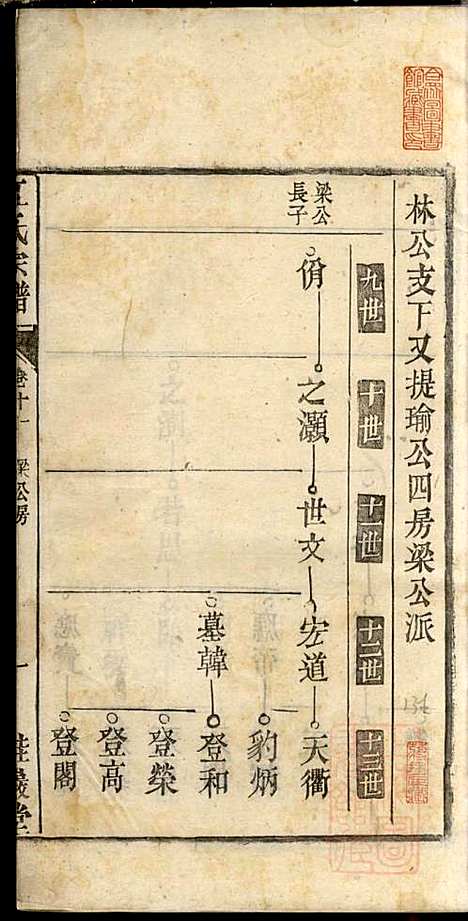 林公支下又提瑜公四房梁公派
九世
十世
十一世
十二世
十三世
梁公長子
俏
之灝
世文
宏道
天衢
豹炳
墓韓
登和
登榮
登高
登閣
氏宗譜
卷十一
梁公房
一
堂